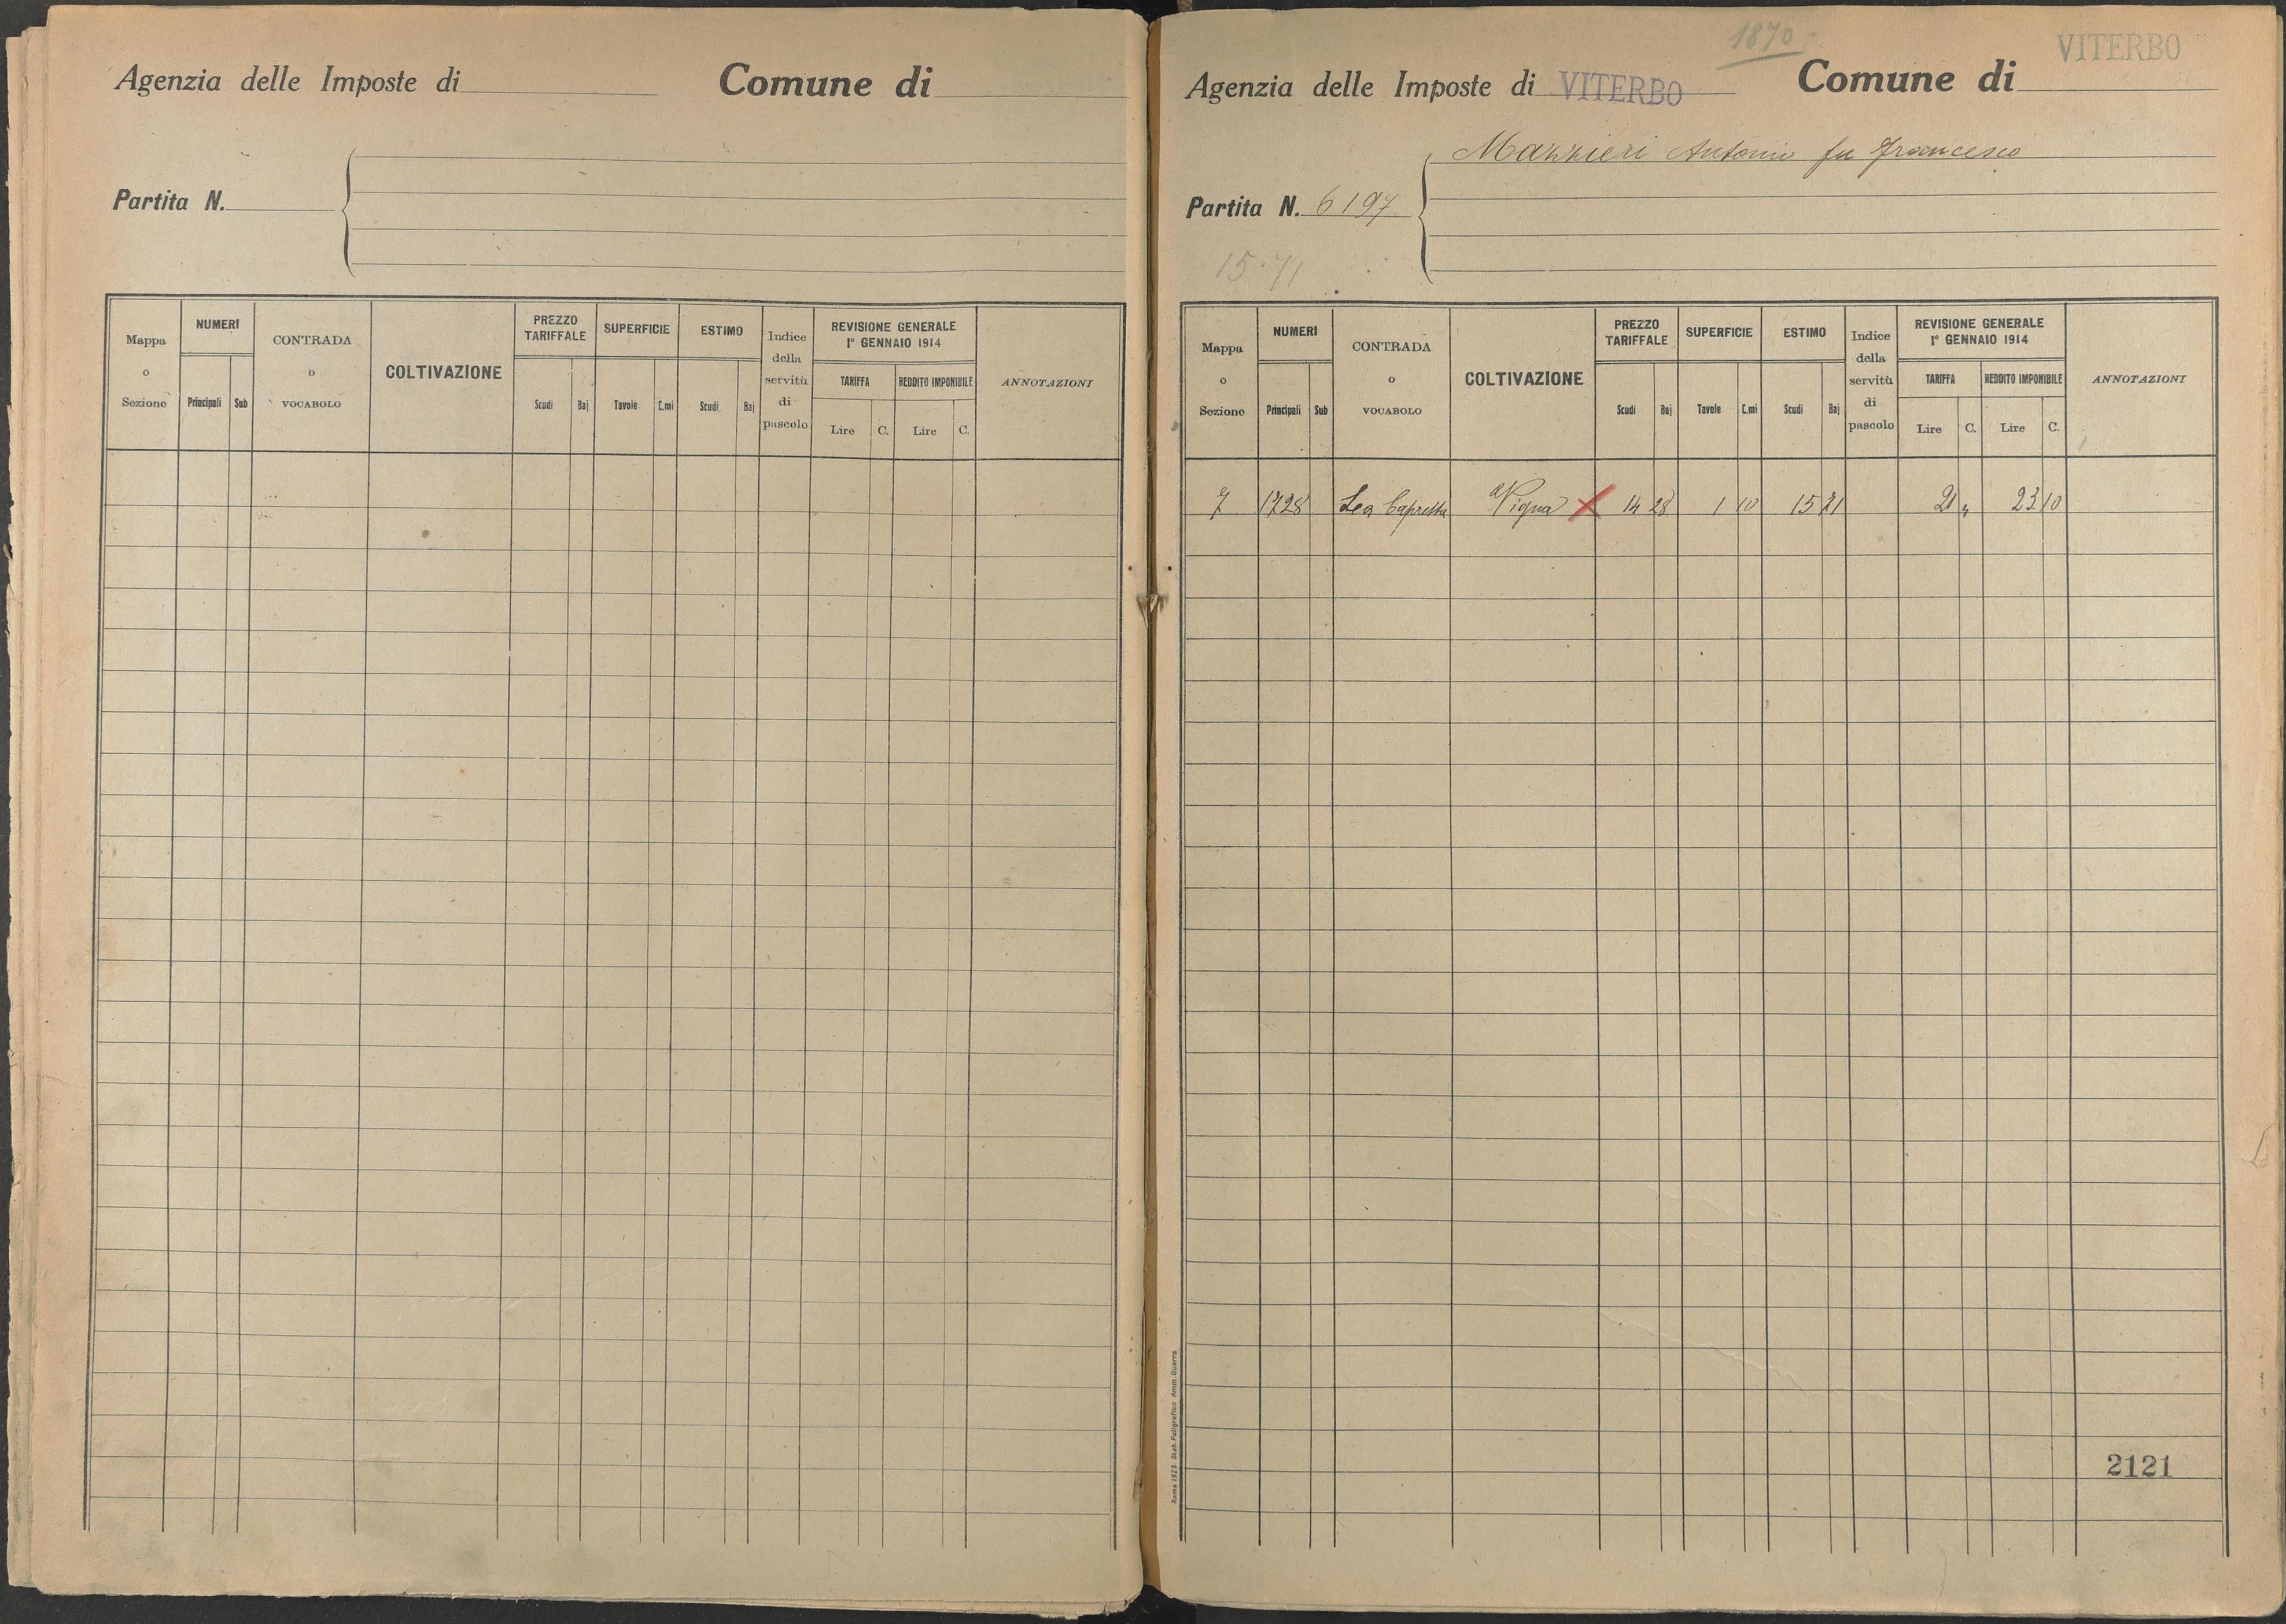 Agenzia delle Imposte di
Comune di
Partita N.
Mappa o Sezione
NUMERI
Principali
Sub
CONTRADA o VOCABOLO
COLTIVAZIONE
PREZZO TARIFFALE
Scudi
Baj
SUPERFICIE
Tavole
C.mi
ESTIMO
Scudi
Baj
Indice della servitù di pascolo
REVISIONE GENERALE
1° GENNAIO 1914
TARIFFA
REDDITO IMPONIBILE
Lire
C.
Lire
C.
ANNOTAZIONI
1870
VITERBO
Agenzia delle Imposte di VITERBO
Comune di
Mazzieri Antonio fu Francesco
Partita N. 6197
15.71
Mappa o Sezione
NUMERI
Principali
Sub
CONTRADA o VOCABOLO
COLTIVAZIONE
PREZZO TARIFFALE
Scudi
Baj
SUPERFICIE
Tavole
C.mi
ESTIMO
Scudi
Baj
Indice della servitù di pascolo
REVISIONE GENERALE
1° GENNAIO 1914
TARIFFA
REDDITO IMPONIBILE
Lire
C.
Lire
C.
ANNOTAZIONI
7 1728 Vigna 14 28 1 10 15 71 21 " 23 10
Roma 1923 Stab. Poligrafico Amm. Guerra
2121